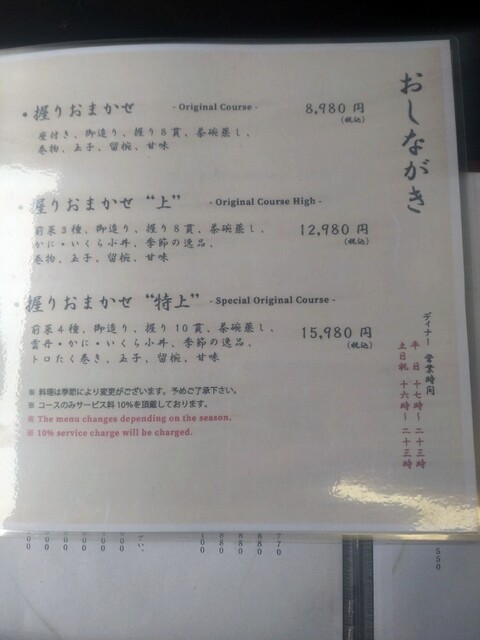 おしながき
・握りおまかせ - Original Course - 8,980 円
(税込)
座付き、御造り、握り8貫、茶碗蒸し、
巻物、玉子、留椀、甘味
・握りおまかせ “上” - Original Course High - 12,980 円
(税込)
前菜3種、御造り、握り8貫、茶碗蒸し、
かに・いくら小丼、季節の逸品、
巻物、玉子、留椀、甘味
・握りおまかせ “特上” - Special Original Course - 15,980 円
(税込)
前菜4種、御造り、握り10貫、茶碗蒸し、
雲丹・かに・いくら小丼、季節の逸品、
トロたく巻き、玉子、留椀、甘味
※ 料理は季節により変更がございます。予めご了承下さい。
※ コースのみサービス料10%を頂戴しております。
※ The menu changes depending on the season.
※ 10% service charge will be charged.
ディナー 営業時間
平 日 十七時~二十三時
土日祝 十六時~二十三時